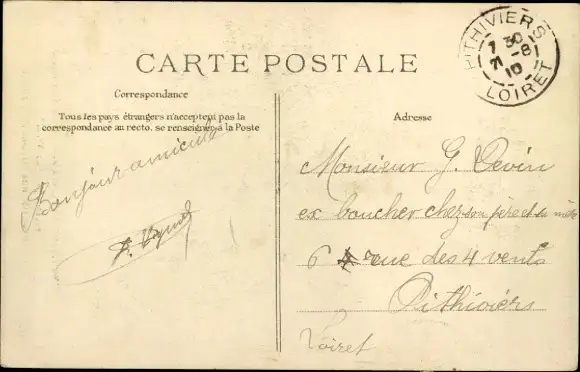 CARTE POSTALE
PITHIVIERS
7 30
21 -8
10
LOIRET
Correspondance
Tous les pays étrangers n'acceptent pas la
correspondance au recto, se renseigner à la Poste
Bonjour amical
Adresse
Monsieur G. Devin
ex boucher chez son père et sa mère
6 rue des 4 vents
Pithiviers
Loiret